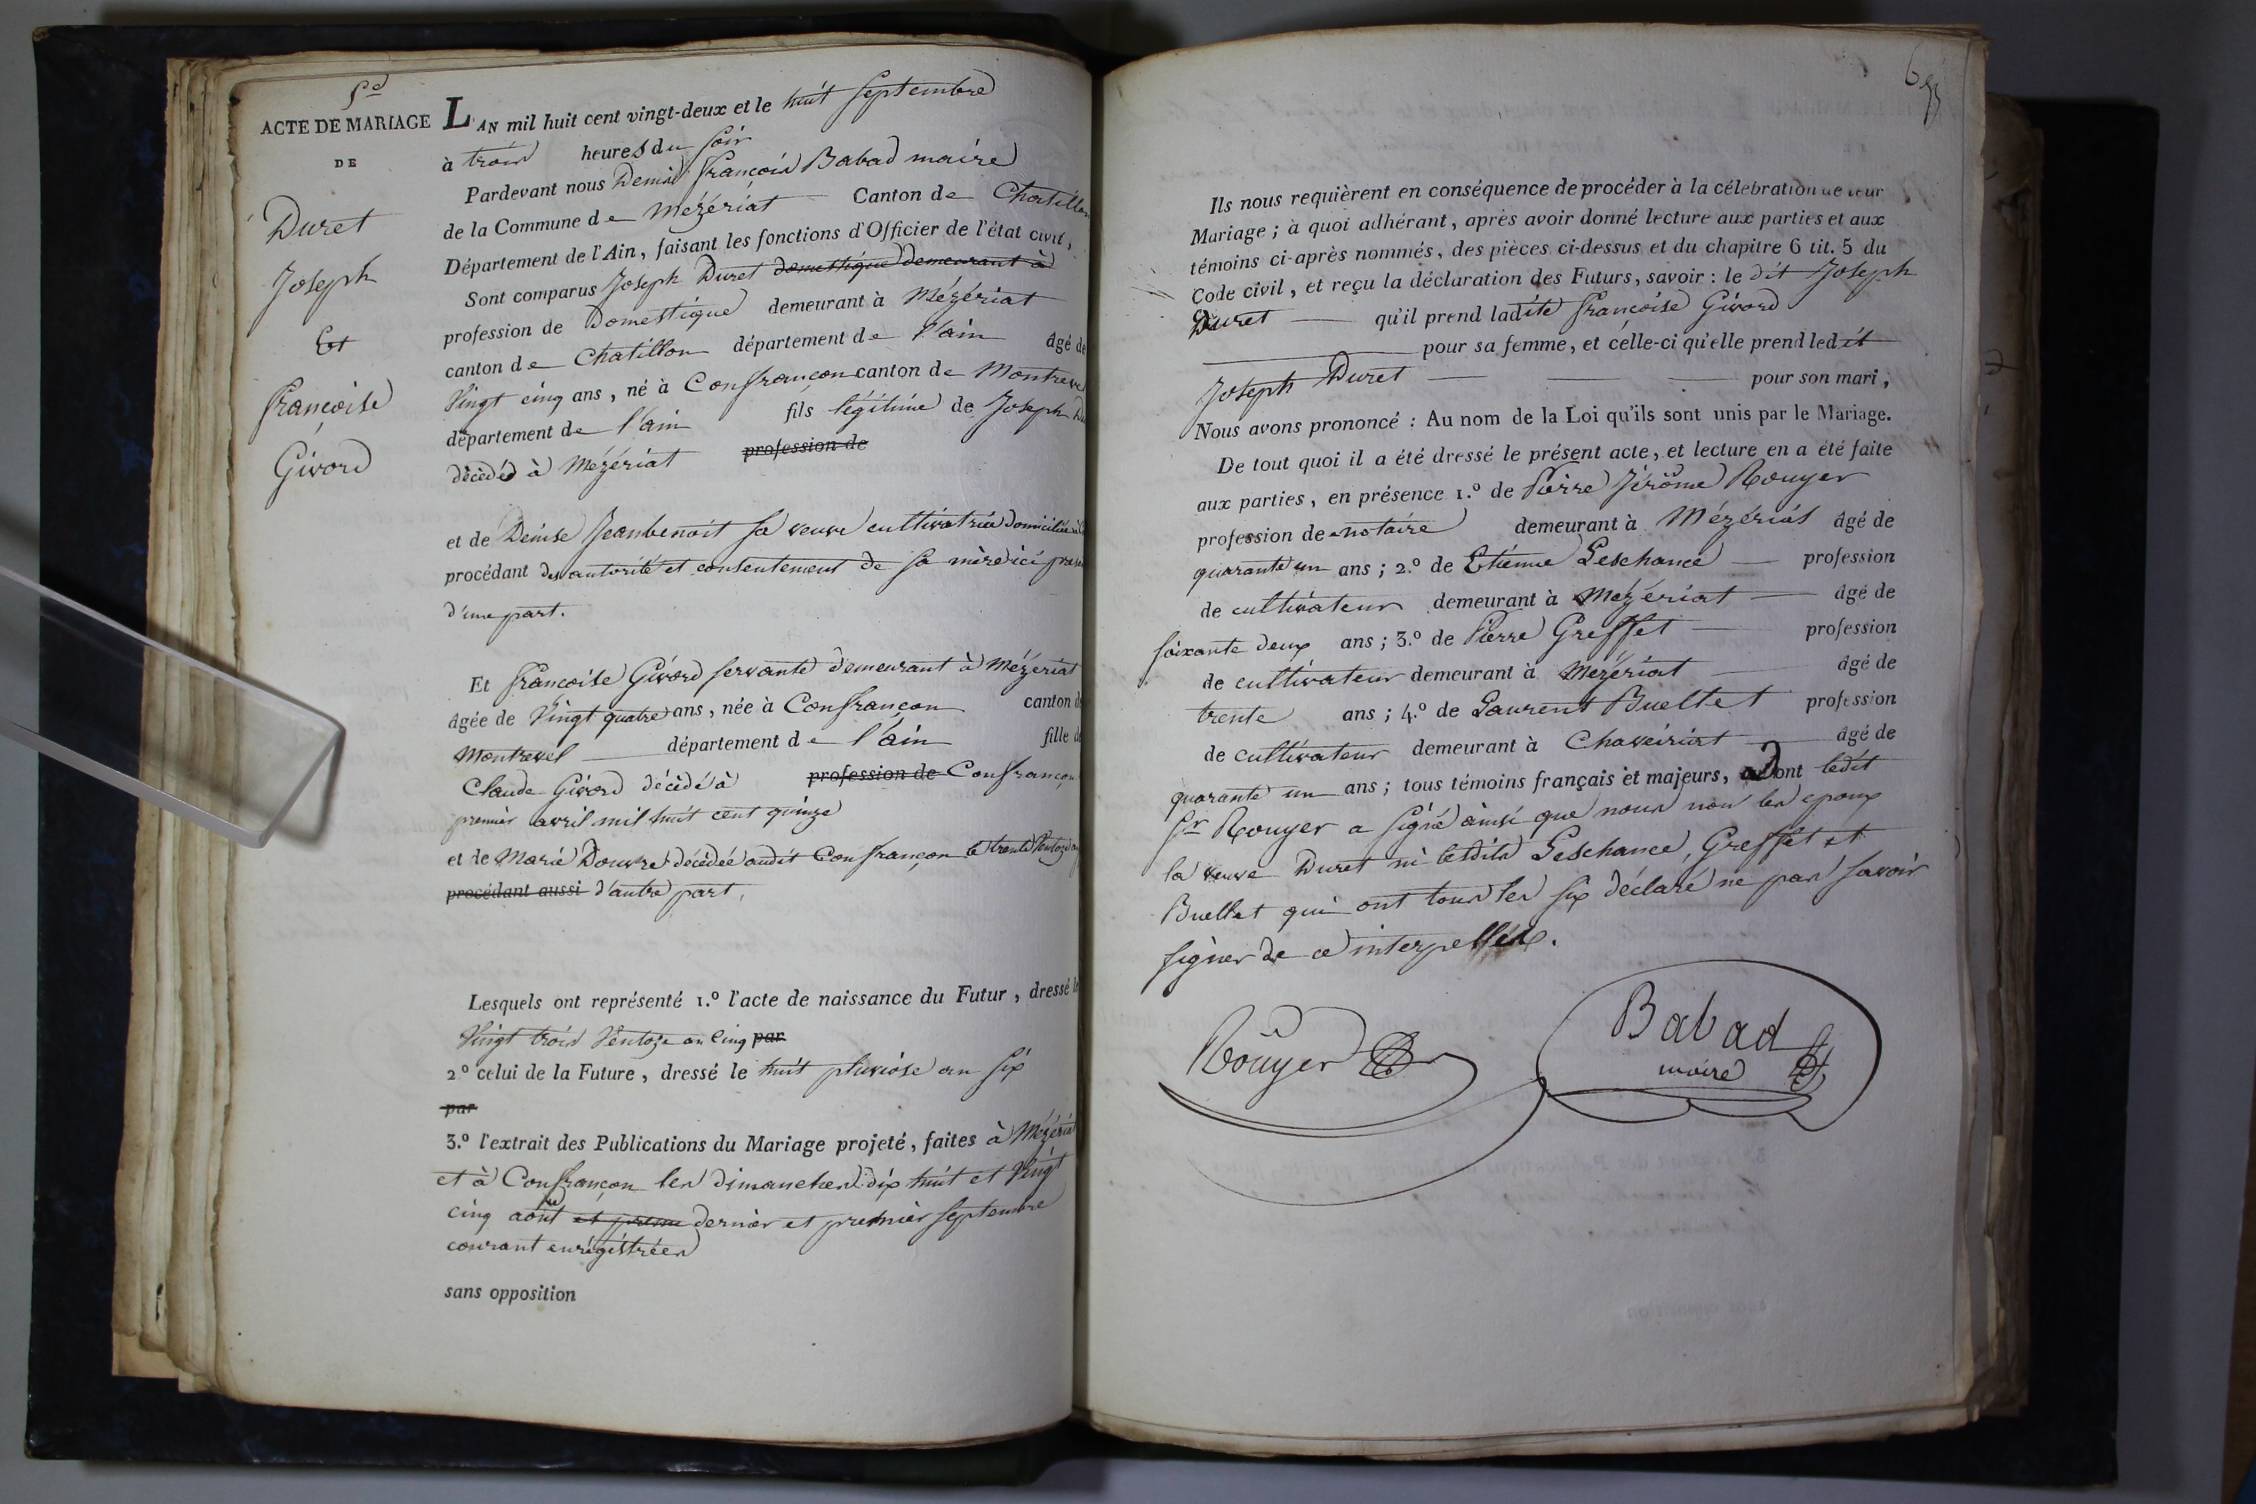 5e
ACTE DE MARIAGE
DE
Duret
Joseph
Et
françoise
Givord
L'AN mil huit cent vingt-deux et le huit Septembre
à trois heures du Soir
Pardevant nous Denis françois Babad maire
de la Commune de Mézériat Canton de Chatillon
Département de l'Ain, faisant les fonctions d'Officier de l'état civil,
Sont comparus Joseph Duret domestique demeurant à
profession de Domestique demeurant à Mézériat
canton de Chatillon département de l'ain âgé de
Vingt cinq ans, né à Confrançon canton de Montrevel
département de l'ain fils légitime de Joseph Du
décédé à Mézériat profession de
et de Denise Jeanbenoit sa veuve cultivatrice domiciliée à
procédant des autorité et consentement de sa mère ici
d'une part.
Et françoise Givord servante demeurant à Mézériat
âgée de Vingt quatre ans, née à Confrançon canton de
Montrevel département de l'ain fille de
Claude Givord décédé à profession de Confrançon
premier avril mil huit cent quinze
et de Marie Douvre décédée audit Confrançon le trente Ventoze
procédant aussi d'autre part,
Lesquels ont représenté 1.º l'acte de naissance du Futur, dressé le
Vingt trois Ventoze an Cinq par
2º celui de la Future, dressé le huit pluviôse an Six
par
3.º l'extrait des Publications du Mariage projeté, faites à Mézériat
et à Confrançon les dimanches dix huit et Vingt
cinq août dernier et premier septembre
courant enrégistrées
sans opposition
Ils nous requièrent en conséquence de procéder à la célébration de leur
Mariage; à quoi adhérant, après avoir donné lecture aux parties et aux
témoins ci-après nommés, des pièces ci-dessus et du chapitre 6 tit. 5 du
Code civil, et reçu la déclaration des Futurs, savoir: le dit Joseph
Duret qu'il prend ladite françoise Givord
pour sa femme, et celle-ci qu'elle prend ledit
Joseph Duret pour son mari,
Nous avons prononcé: Au nom de la Loi qu'ils sont unis par le Mariage.
De tout quoi il a été dressé le présent acte, et lecture en a été faite
aux parties, en présence 1.º de Pierre Jérôme Rouyer
profession de notaire demeurant à Mézériat âgé de
quarante un ans; 2.º de Etienne Leschance profession
de cultivateur demeurant à Mézériat âgé de
soixante deux ans; 3.º de Pierre Greffet profession
de cultivateur demeurant à Mézériat âgé de
trente ans; 4.º de Laurent Buellet profession
de cultivateur demeurant à Chaveiriat âgé de
quarante un ans; tous témoins français et majeurs, Dont ledit
Sr Rouyer a signé ainsi que nous non les epoux
la veuve Duret ni lesdits Leschance, Greffet et
Buellet qui ont tous les six déclaré ne pas savoir
signer de ce interpellés.
Rouyer
Babad
maire